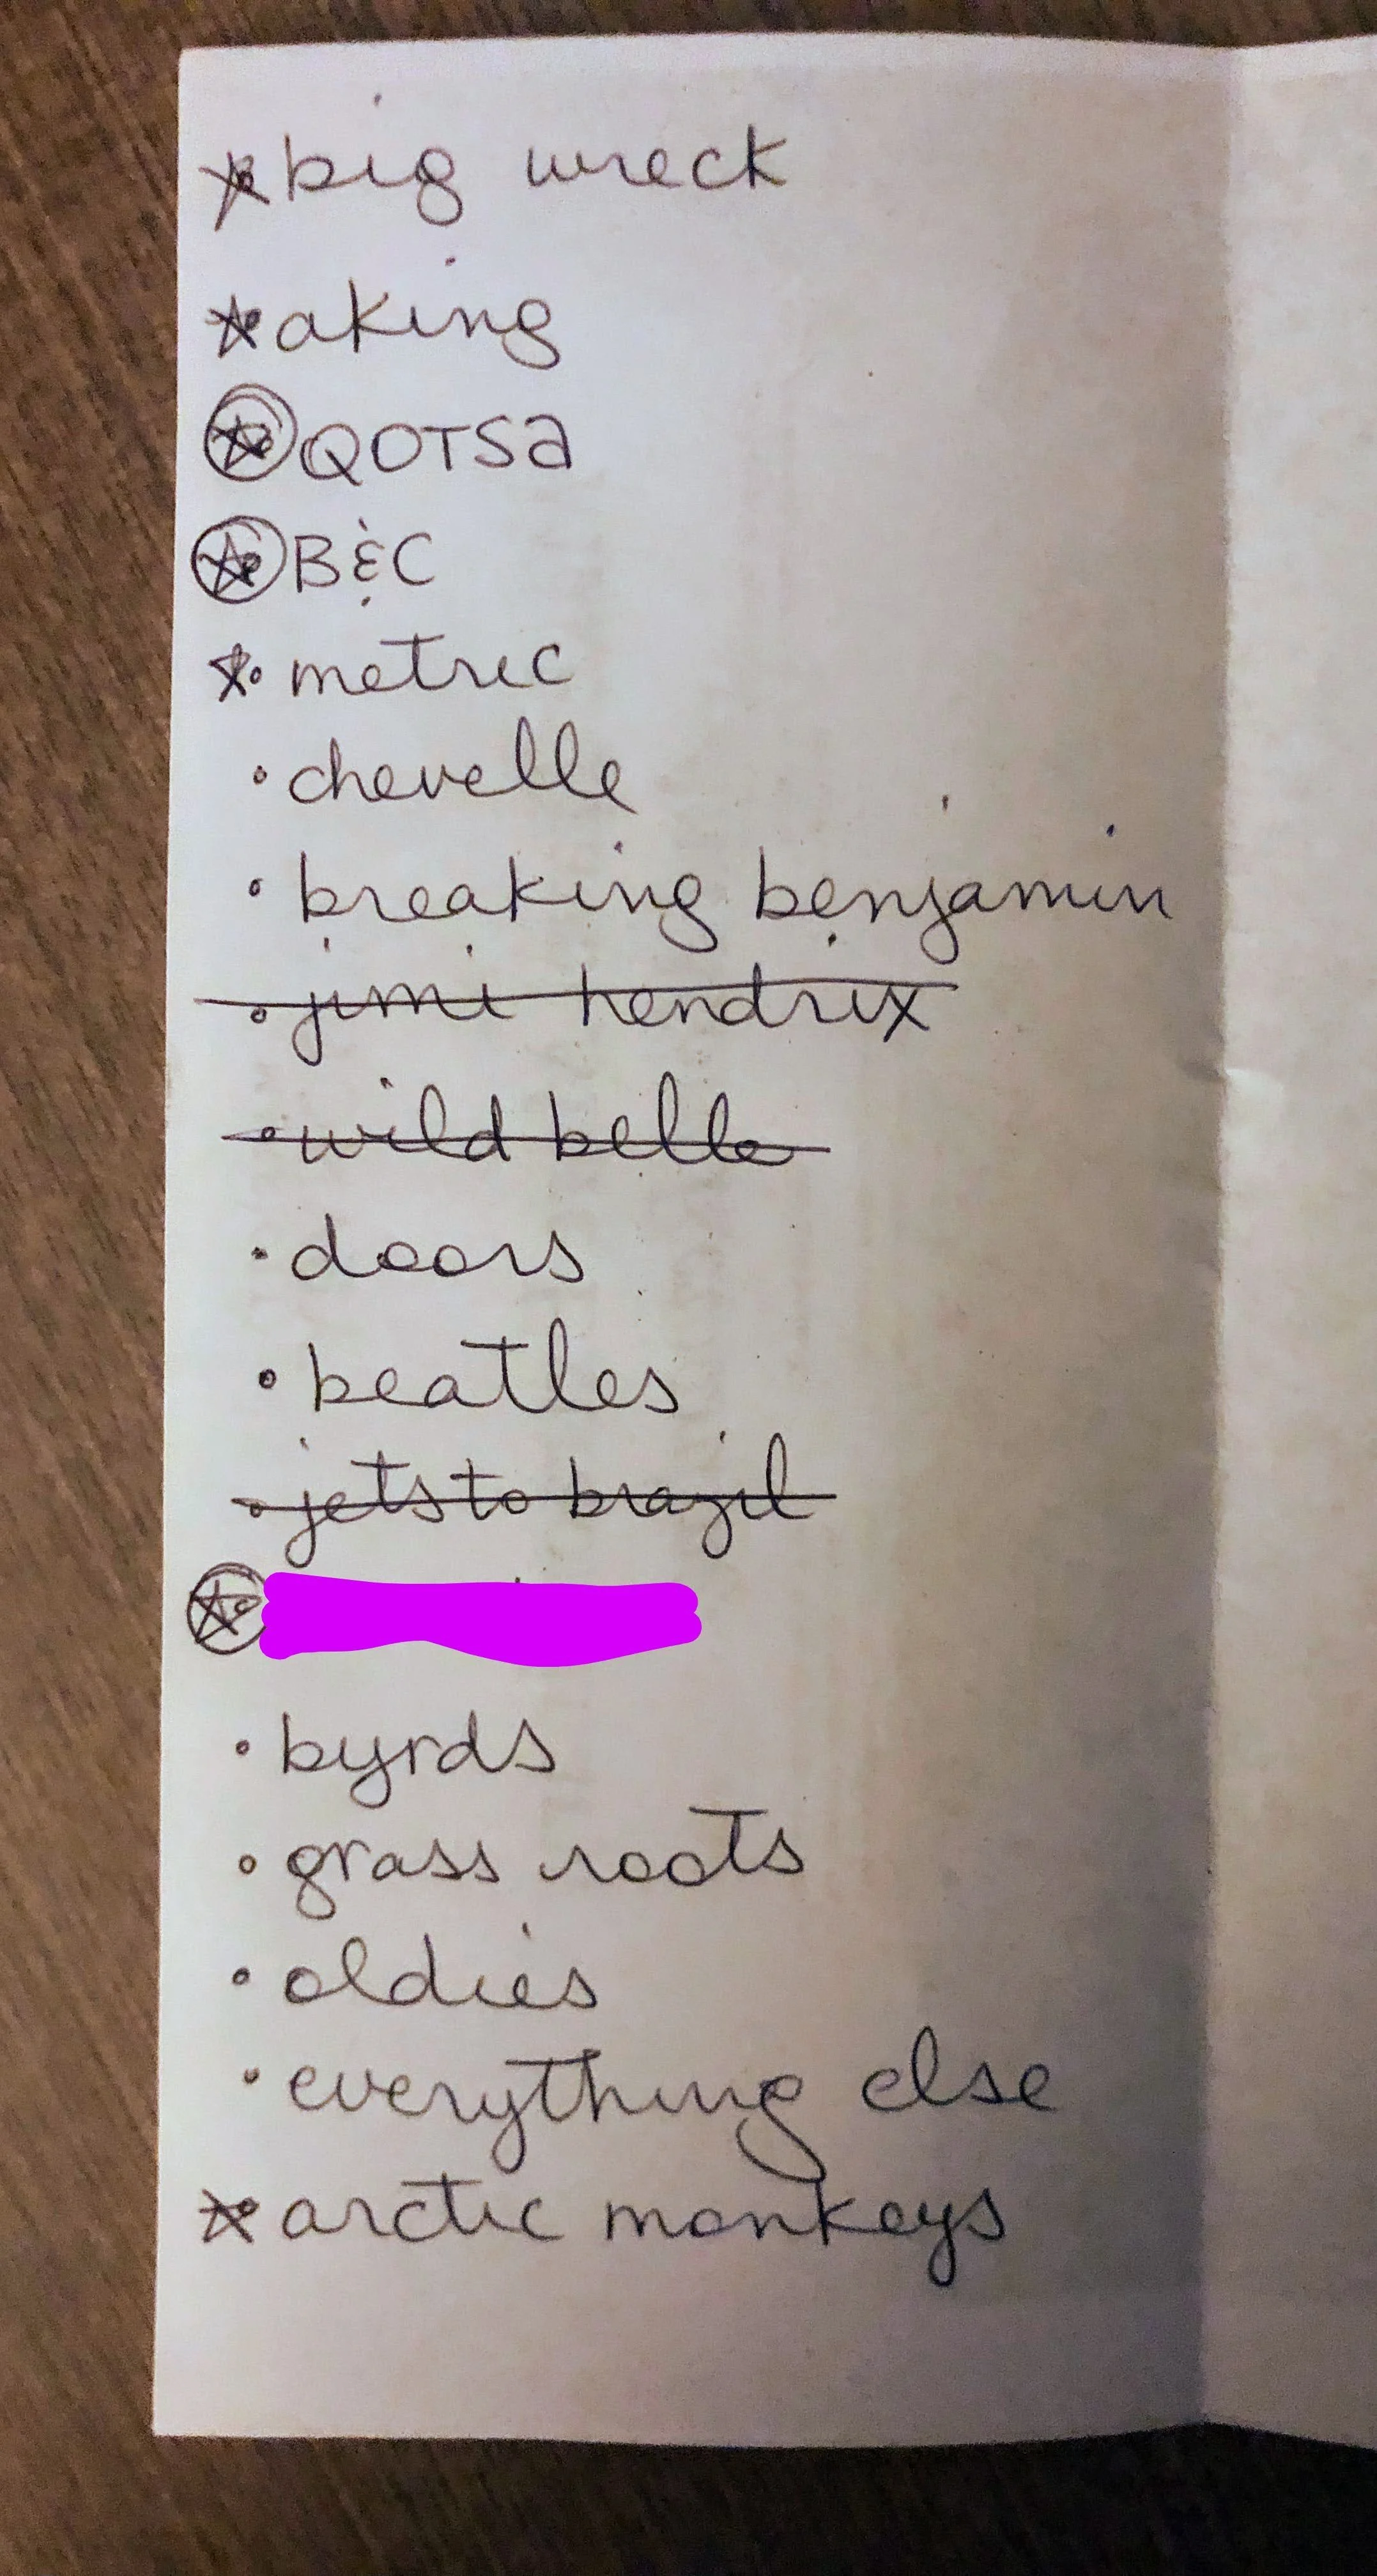 big wreck
aking
QOTSa
B&C
metric
chevelle
breaking benjamin
jimi hendrix
wild belle
doors
beatles
jets to brazil
byrds
grass roots
oldies
everything else
arctic monkeys